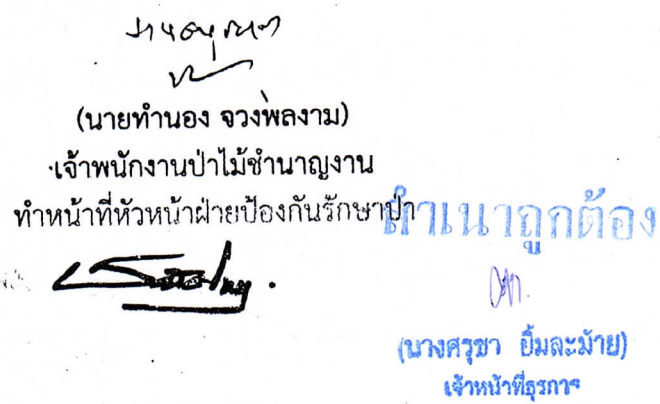 (นายทำนอง จวงพลงาม)
เจ้าพนักงานป่าไม้ชำนาญงาน
ทำหน้าที่หัวหน้าฝ่ายป้องกันรักษาป่า
สำเนาถูกต้อง
(นางศรุชา อิ้มละม้าย)
เจ้าหน้าที่ธุรการ